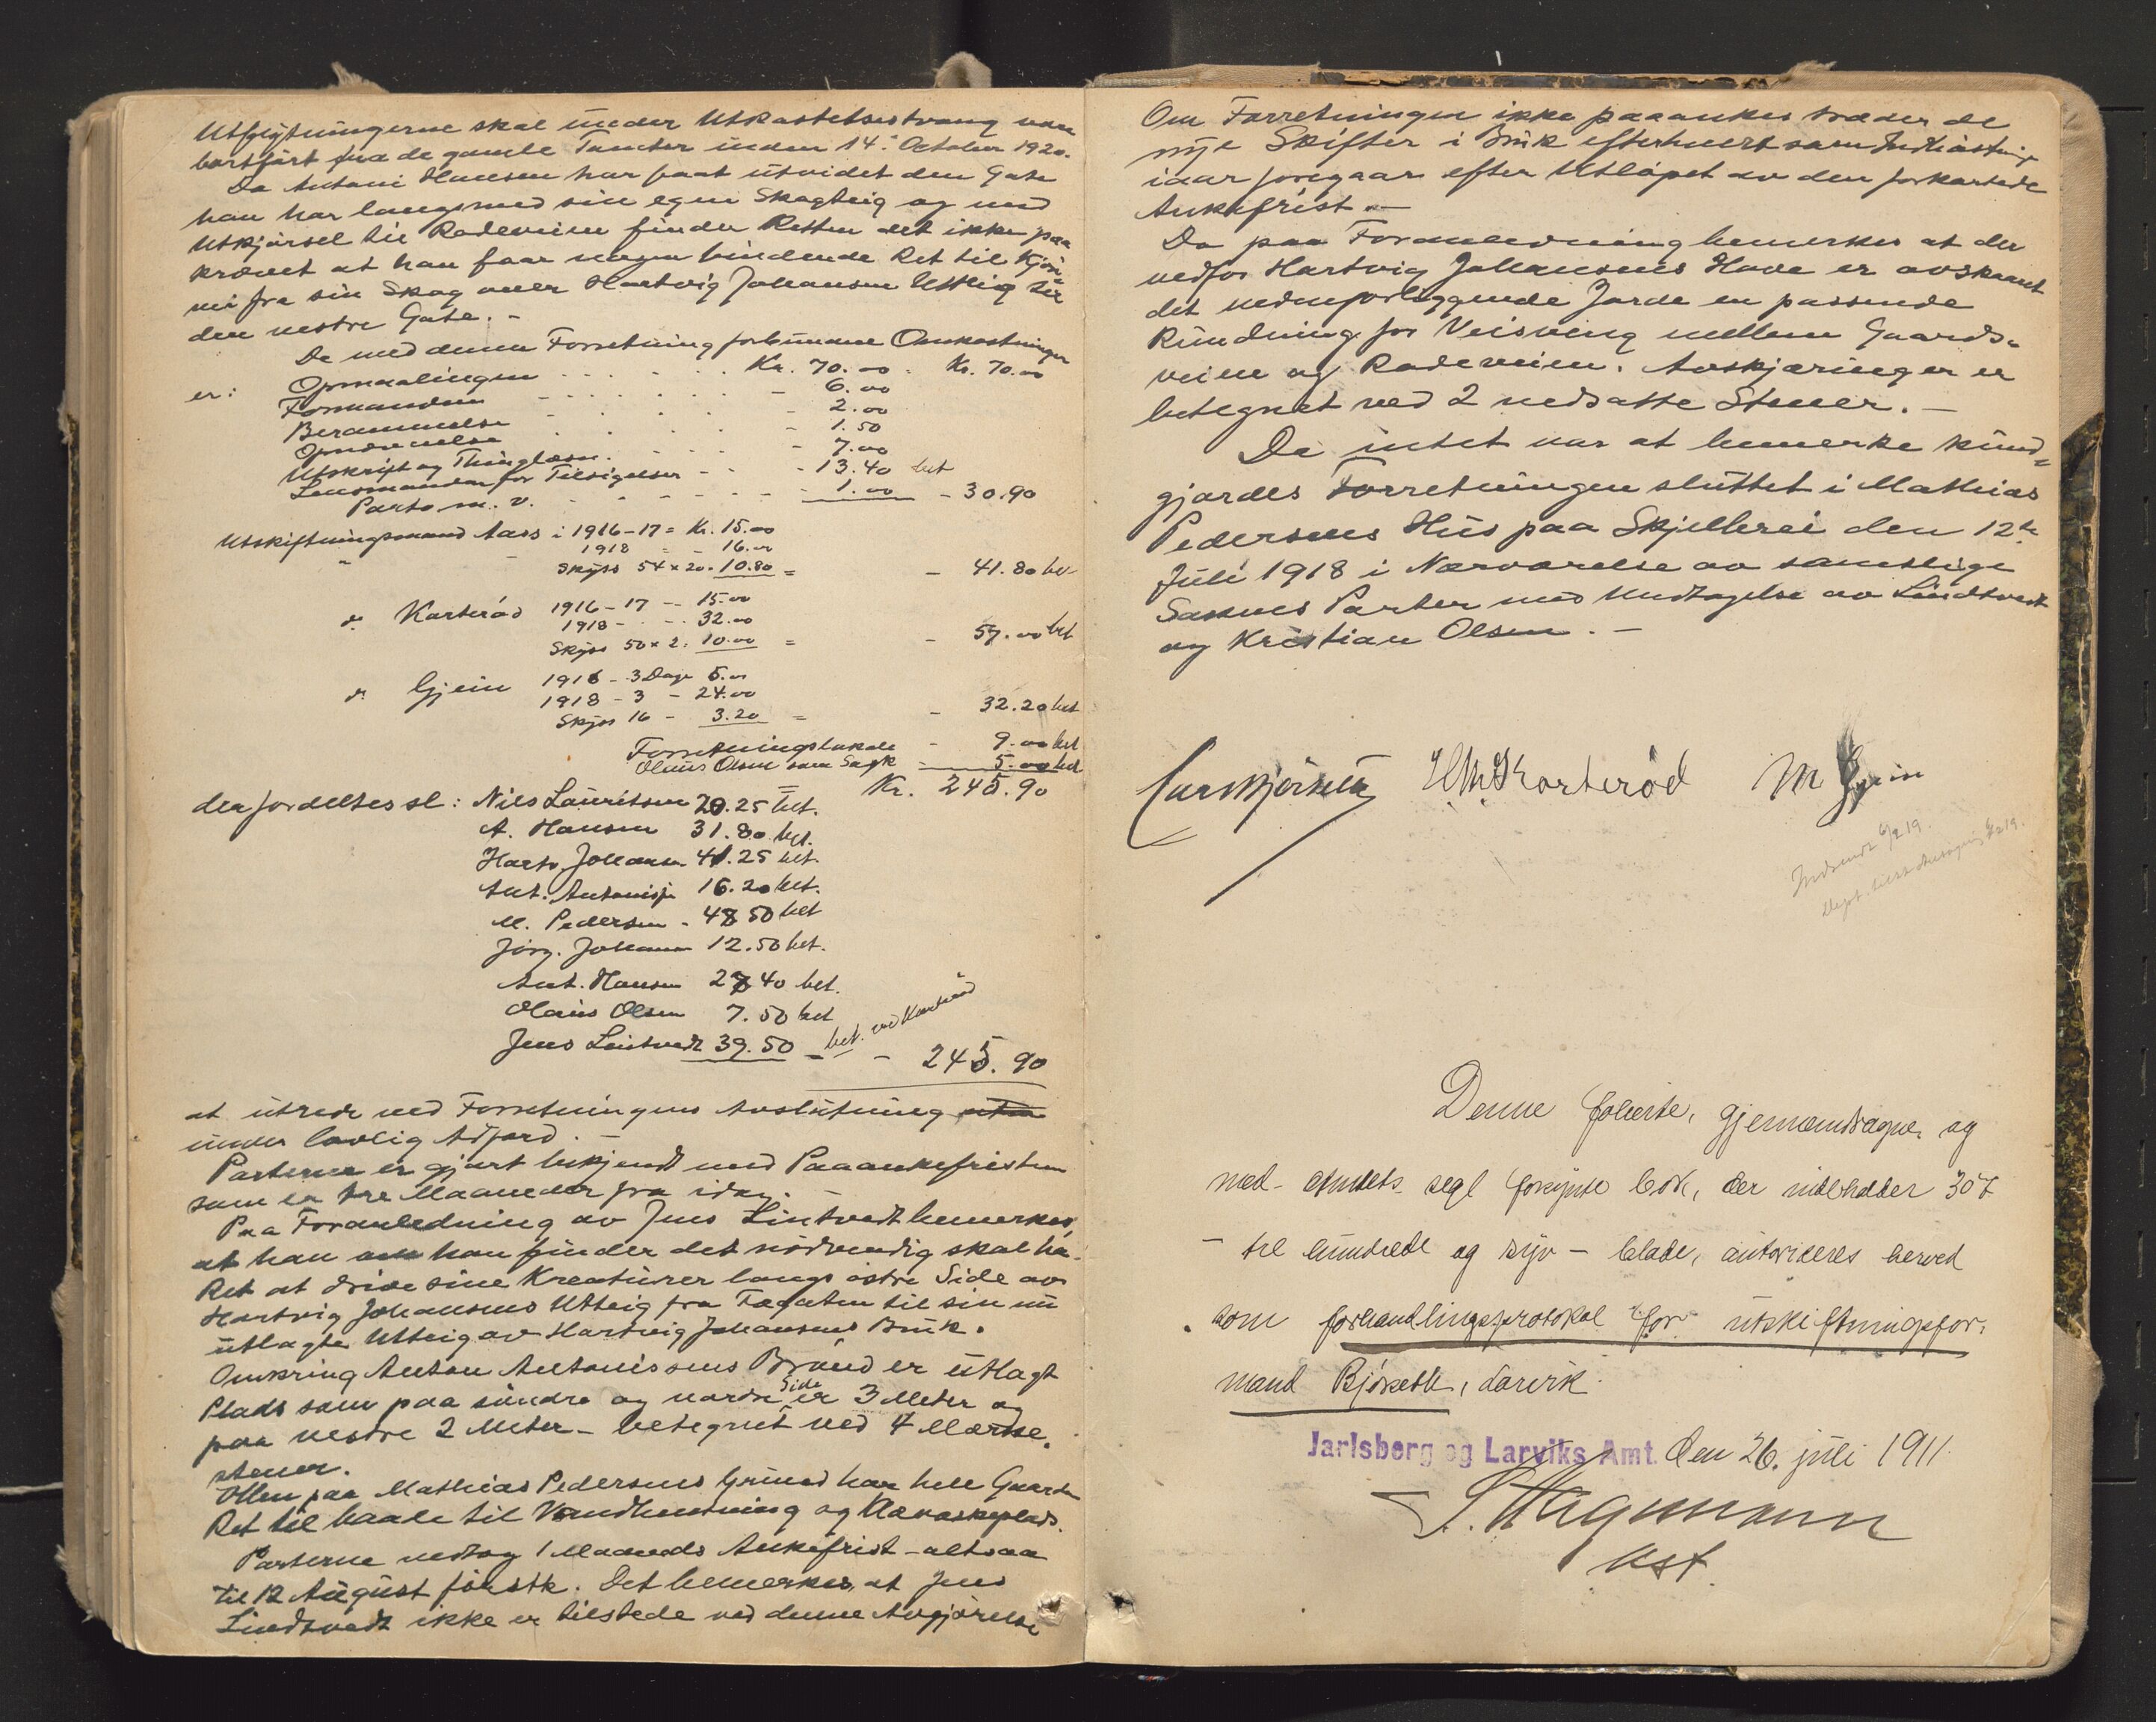 Utflytningerne skal under Utkastelsestvang være
bortført fra de gamle Tomter inden 14. October 1920.
Da Antoni Hansen har faat utvidet den Gate
han har langsmed sin egen Skogteig og med
Utkjørsel til Radeveien finder Retten det ikke paa
krævet at han faar nogen bindende Ret til Kjøre
vei fra sin Skog over Hartvig Johansens Utteig til
den vestre Gate. -
De med denne Forretning forbundne Omkostninger
er: Opmaalingen . . . . . Kr. 70.00 . Kr. 70.00
Formanden - . . . . . - 6.00
Berammelse . . . . - 2.00
Opnævnelse . . . . - 1.50
Utskrift og Thinglæsn. . . . - 7.00
Lensmanden for Tilsigelser - - - 13.40 bet
Porto m. v. - - - - - 1.00 - 30.90
Utskiftningsmand Aass i 1916-17 = Kr. 15.00
" - 1918 - - 16.00
Skyss 54 x 20 = 10.80 = - 41.80 bet
d. Karterød 1916-17 - - 15.00
1918 - - - 32.00
Skyss 50 x 2: 10.00 = - 57.00 bet
d. Gjein 1916 - 3 Dage 5.00
1918 - 3 - 24.00
Skyss 16 - 3.20 = - 32.20 bet
Forretningslokale - 9.00 bet
Olaus Olsen som Sagk - 5.00 bet
Kr. 245.90
der fordeltes sl: Nils Lauritsen 20.25 bet.
A. Hansen 31.80 bet.
Hartv. Johansen 41.25 bet.
Ant. Antonisen 16.20 bet.
M. Pedersen - 48 50 bet
Jørg. Johansen 12.50 bet.
Ant. Hansen 28 40 bet.
Olaus Olsen 7.50 bet
Jens Lintvedt 39.50 - bet. ved Karterød
- 245.90
at utrede ved Forretningens Avslutning
under lovlig Adfærd. -
Parterne er gjort bekjendt med Paaankefristen
som er tre Maaneder fra idag. -
Paa Foranledning av Jens Lintvedt bemerkes,
at han om han finder det nødvendig skal ha
Ret at drive sine Kreaturer langs østre Side av
Hartvig Johansens Utteig fra Fægaten til sin nu
utlagte Utteig av Hartvig Johansens Bruk.
Omkring Anton Antonissens Brønd er utlagt
Plads som paa søndre og nordre Side er 3 Meter og
paa vestre 2 Meter - betegnet ved 4 Merke-
stener.
Ollen paa Mathias Pedersens Grund har hele Gaarden
Ret til baade til Vandhentning og Klævaskeplads.
Parterne vedtog 1 Maaneds Ankefrist - altsaa
til 12 August førstk. Det bemerkes, at Jens
Lindtvedt ikke er tilstede ved denne Avgjørelse
Om Forretningen ikke paaankes træder de
nye Skifter i Bruk efterhvert som Indhøstning
iaar foregaar efter Utløpet av den forkortede
Ankefrist. -
Da paa Foranledning bemerkes at der
nedfor Hartvig Johansens Have er avskaaret
det nedenforliggende Jorde en passende
Runding for Veisving mellem Gaards-
veien og Radeveien. Avskjæringen er
betegnet ved 2 nedsatte Stener. -
Da intet var at bemerke kund-
gjordes Forretningen sluttet i Mathias
Pedersens Hus paa Skjellerei den 12te
Juli 1918 i Nærværelse av samtlige
Sakens Parter med Undtagelse av Lindtvedt
og Kristian Olsen. -
Lars Bjørseth H M Karterød M Gjein
Indsendt 6/2 19.
Denne folierte, gjennemdragne og
med amtets segl forsynte bok, der indeholder 307
- tre hundrede og syv - blade, autoriseres herved
som forhandlingsprotokol for utskiftningsfor-
mand Bjørseth, Larvik.
Jarlsberg og Larviks Amt. den 26. juli 1911.
S. Hagemann
kst.